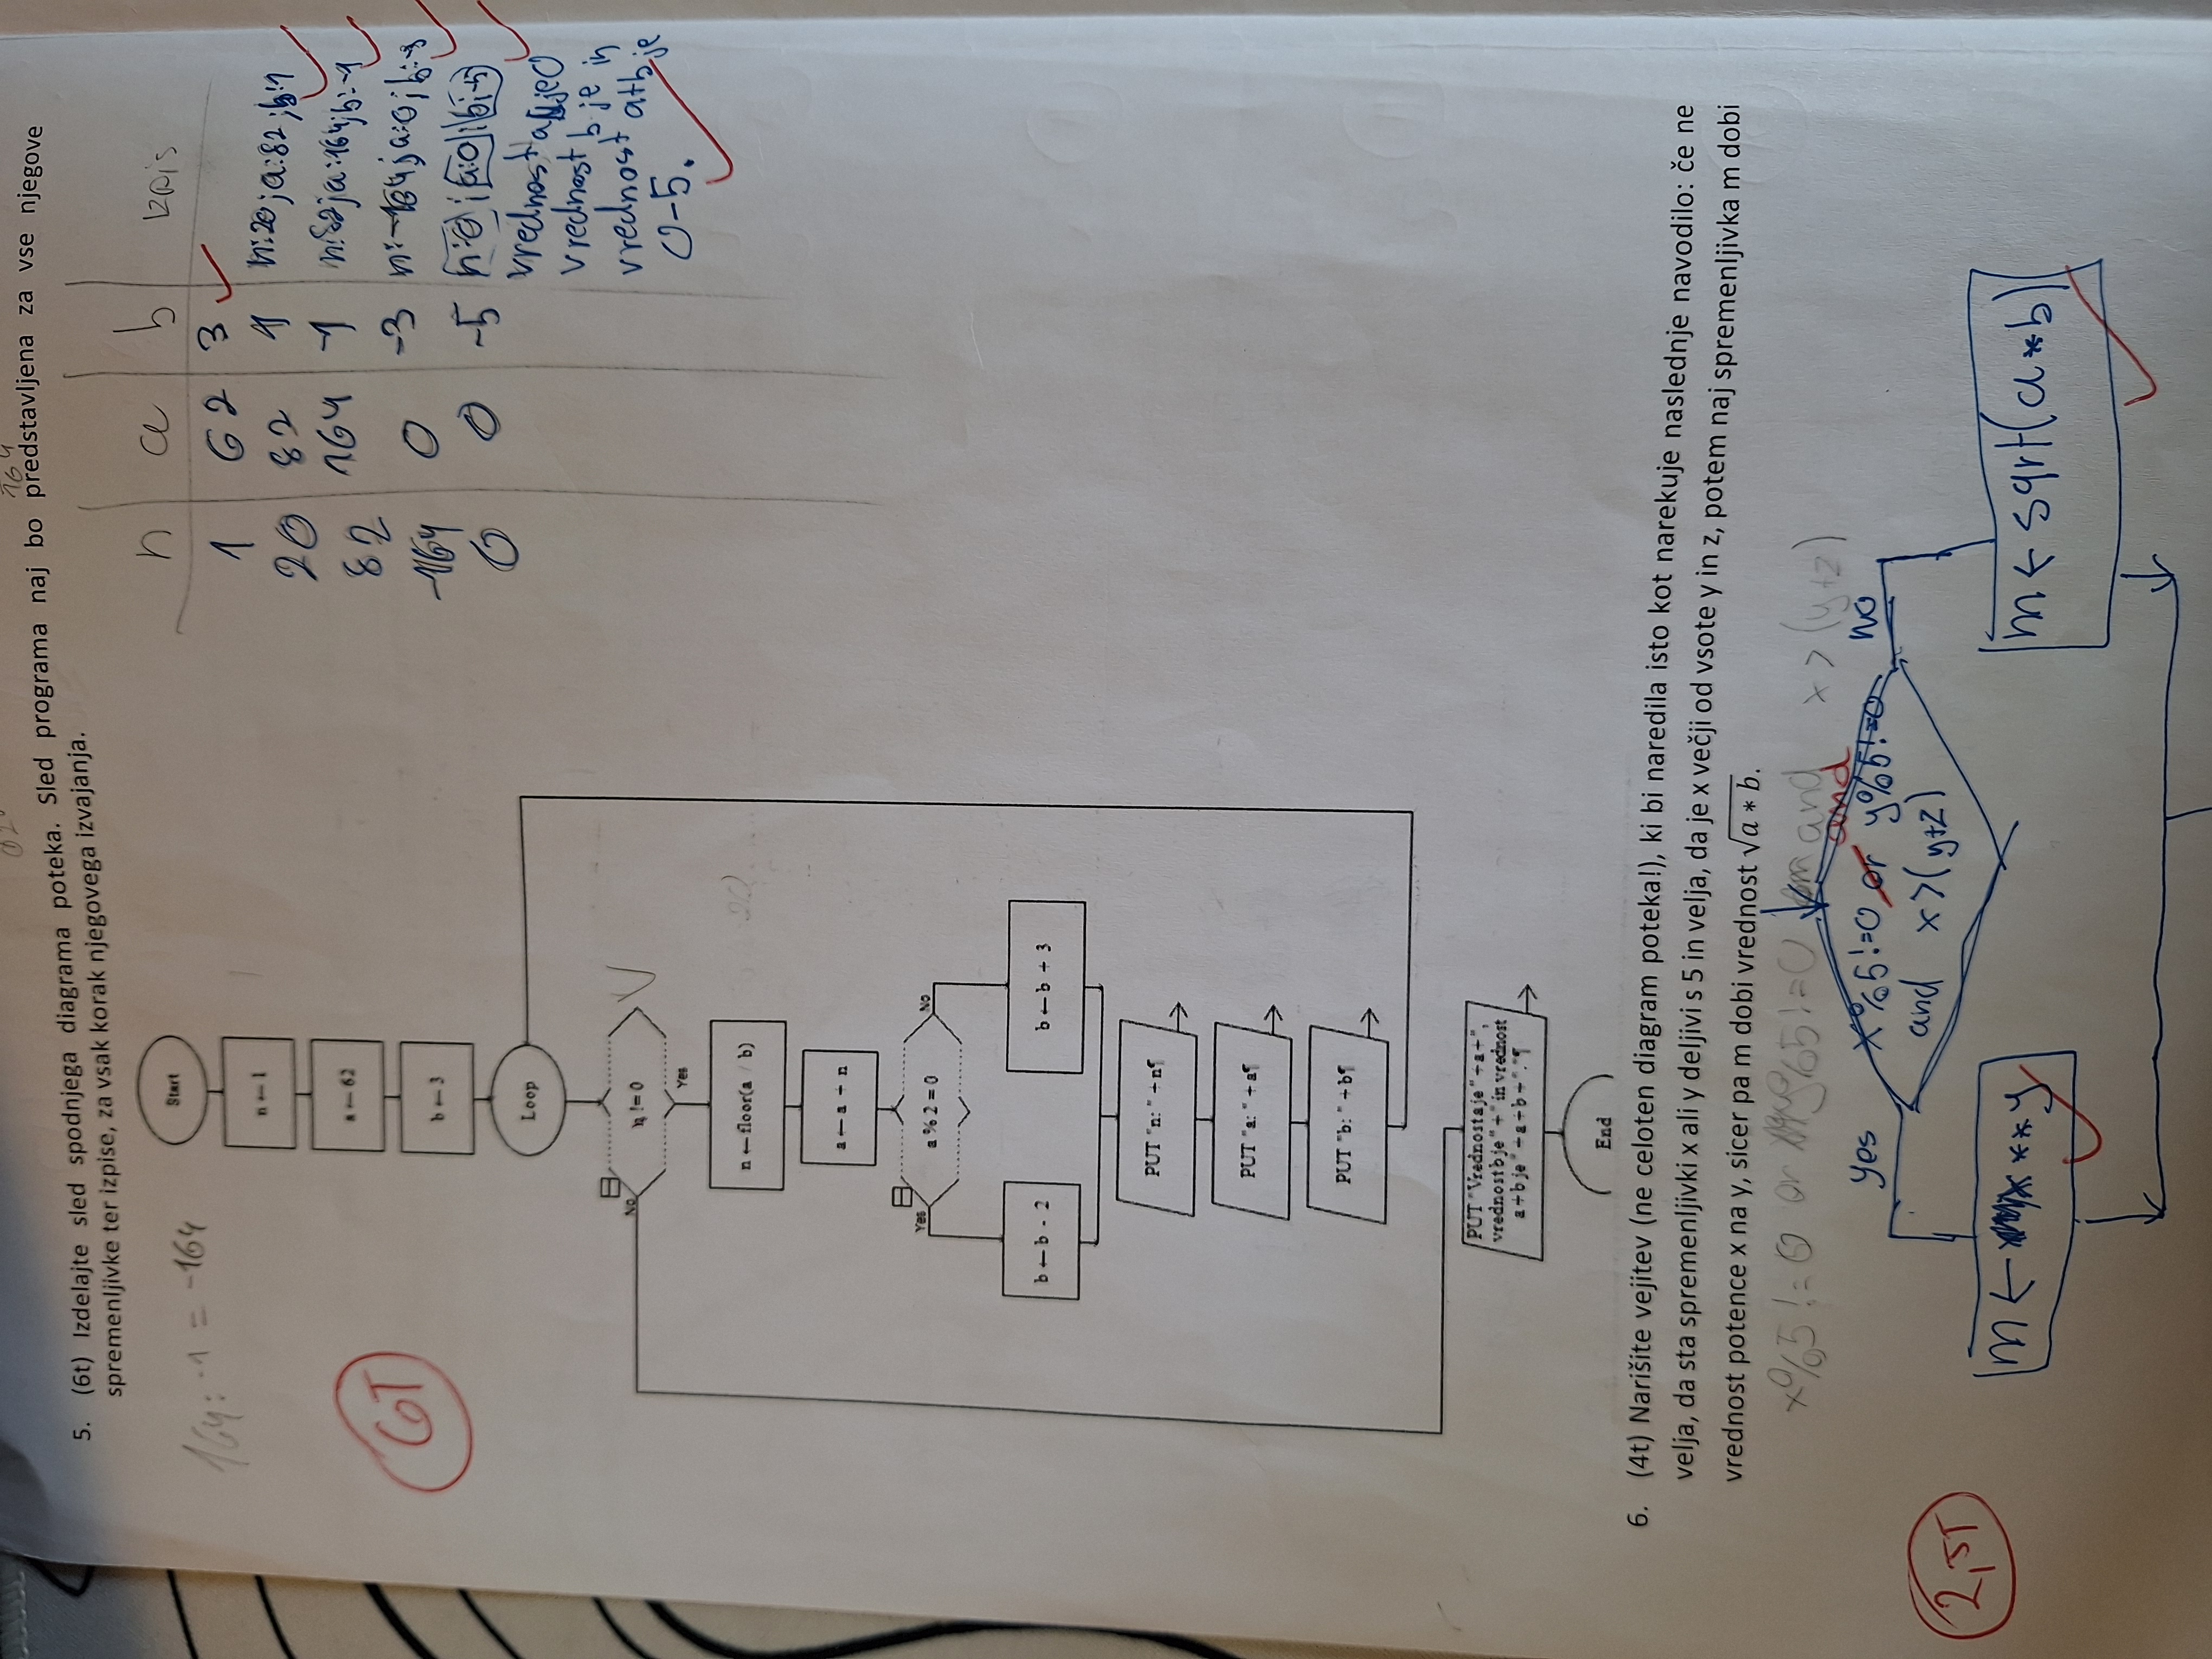 164
5. (6t) Izdelajte sled spodnjega diagrama poteka. Sled programa naj bo predstavljena za vse njegove
spremenljivke ter izpise, za vsak korak njegovega izvajanja.
164 : -1 = -164
6T
Start
n ← 1
a ← 62
b ← 3
Loop
n != 0
No
Yes
n ← floor(a / b)
a ← a + n
a % 2 = 0
Yes
No
b ← b - 2
b ← b + 3
PUT "n: " + n¶
PUT "a: " + a¶
PUT "b: " + b¶
PUT "Vrednost a je " + a + ",
vrednost b je " + " in vrednost
a + b je " + a + b + "."¶
End
n a b izpis
1 62 3
20 82 1 n:20; a:82; b:1
82 164 -1 n:82; a:164; b:-1
-164 0 -3 n:-164; a:0; b:-3
0 0 -5 n:0; a:0; b:-5
vrednost a je 0
vrednost b je in
vrednost a+b je
0-5.
6. (4t) Narišite vejitev (ne celoten diagram poteka!), ki bi naredila isto kot narekuje naslednje navodilo: če ne
velja, da sta spremenljivki x ali y deljivi s 5 in velja, da je x večji od vsote y in z, potem naj spremenljivka m dobi
vrednost potence x na y, sicer pa m dobi vrednost √a * b.
x%5!=0 or y%5!=0 and x>(y+z)
and
yes
x%5!=0 or y%5!=0
and x>(y+z)
no
2,5T
m ← x ** y
m ← sqrt(a*b)